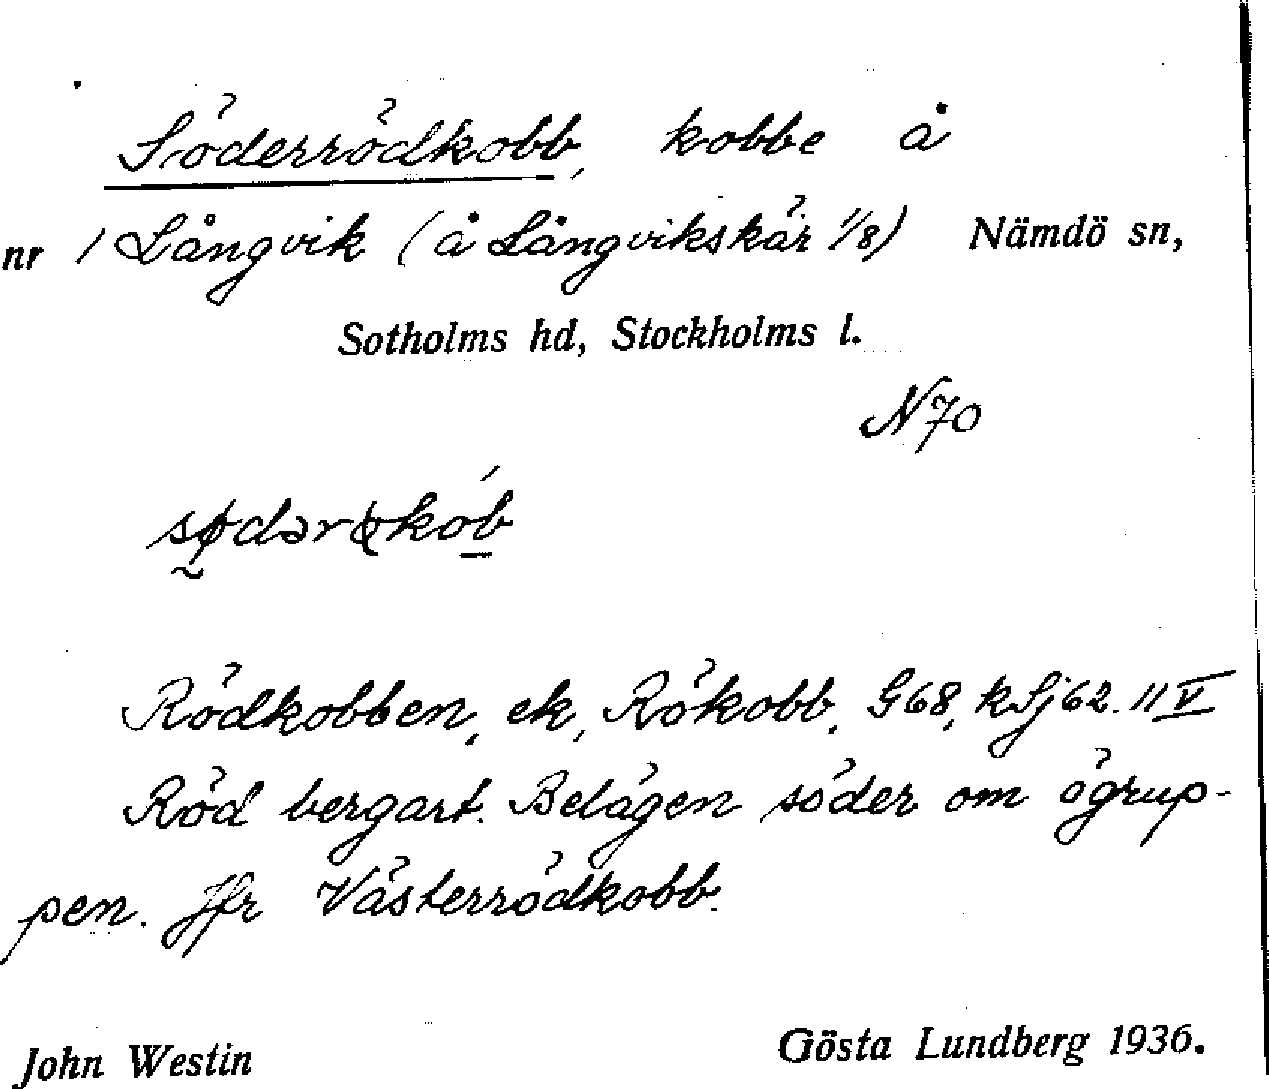 Söderrödkobb, kobbe å
nr 1 Långvik (å Långvikskär 1/8) Nämdö sn,
Sotholms hd, Stockholms l.
N70
Rödkobben, ek, Rökobb, G68, kSj62. 11 V
Röd bergart. Belägen söder om ögrup-
pen. Jfr Västerrödkobb.
John Westin Gösta Lundberg 1936.